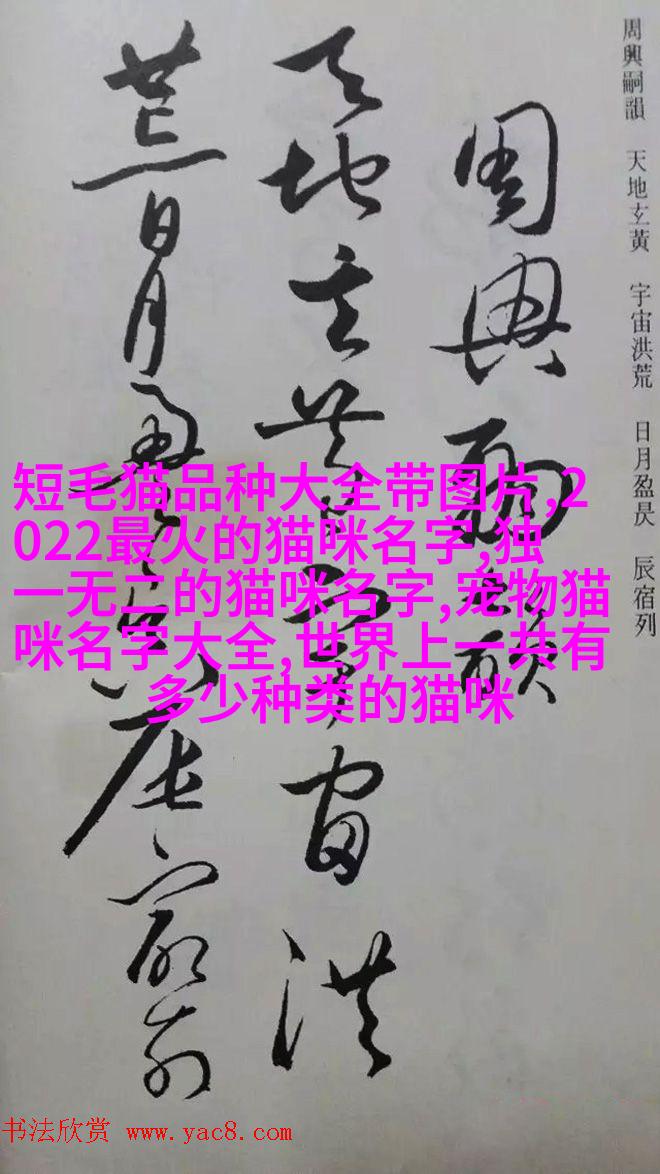 周興嗣韻 天地玄黃 宇宙洪荒 日月盈昃 辰宿列
周興嗣韻
天地玄黃宇宙洪
荒日月盈昃辰宿列
短毛猫品种大全带图片,2
022最火的猫咪名字,独
一无二的猫咪名字,宠物猫
咪名字大全,世界上一共有
多少种类的猫咪
书法欣赏 www.yac8.com